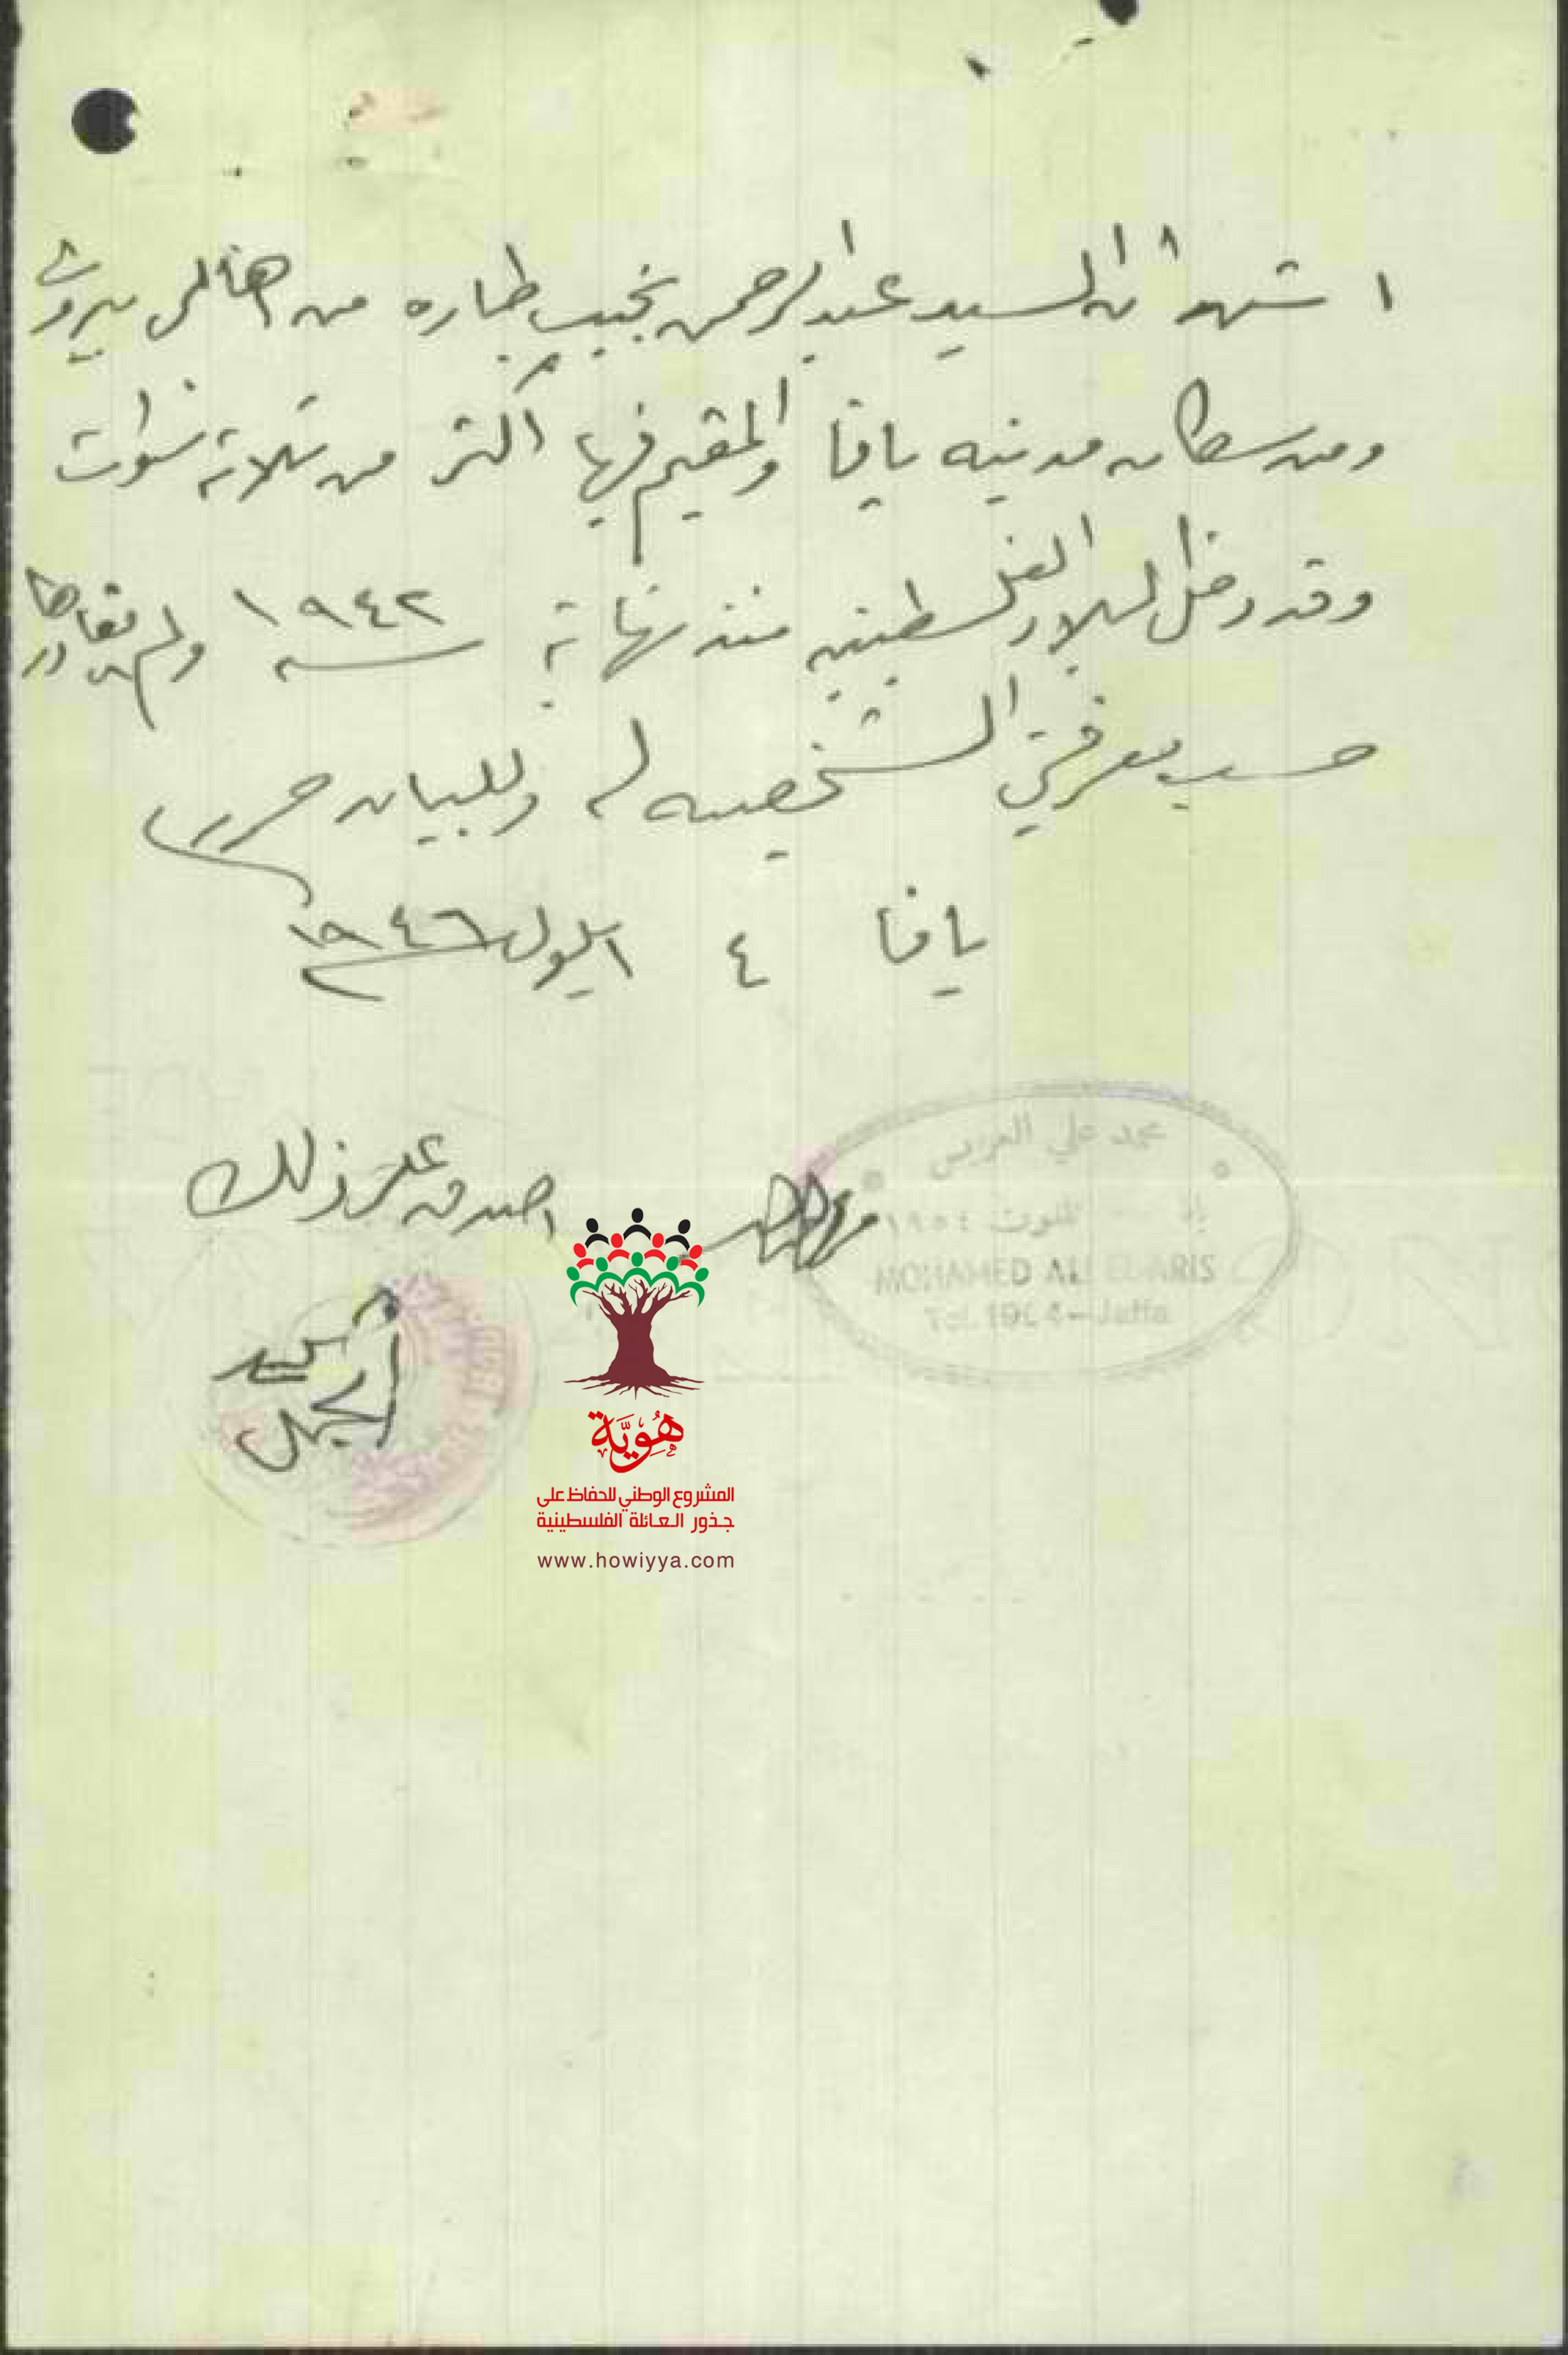 اشهد ان السيد عبد الرحمن نجيب طباره من اهالي بيروت
ومن سكان مدينه يافا والمقيم فيها اكثر من ثلاثة سنوات
وقد دخل البلاد الفلسطينيه منذ نهاية سنه ١٩٤٢ ولم يغادرها
حسب معرفتي الشخصيه له وللبيان حرر
يافا ٤ ايلول ١٩٤٦
محمد علي العريس
تلفون ١٩٥٤
MOHAMED ALI ARIS
Tel. 1954-Jaffa
اصدق على ذلك
هُوِيَّة
المشروع الوطني للحفاظ على
جذور العائلة الفلسطينية
www.howiyya.com